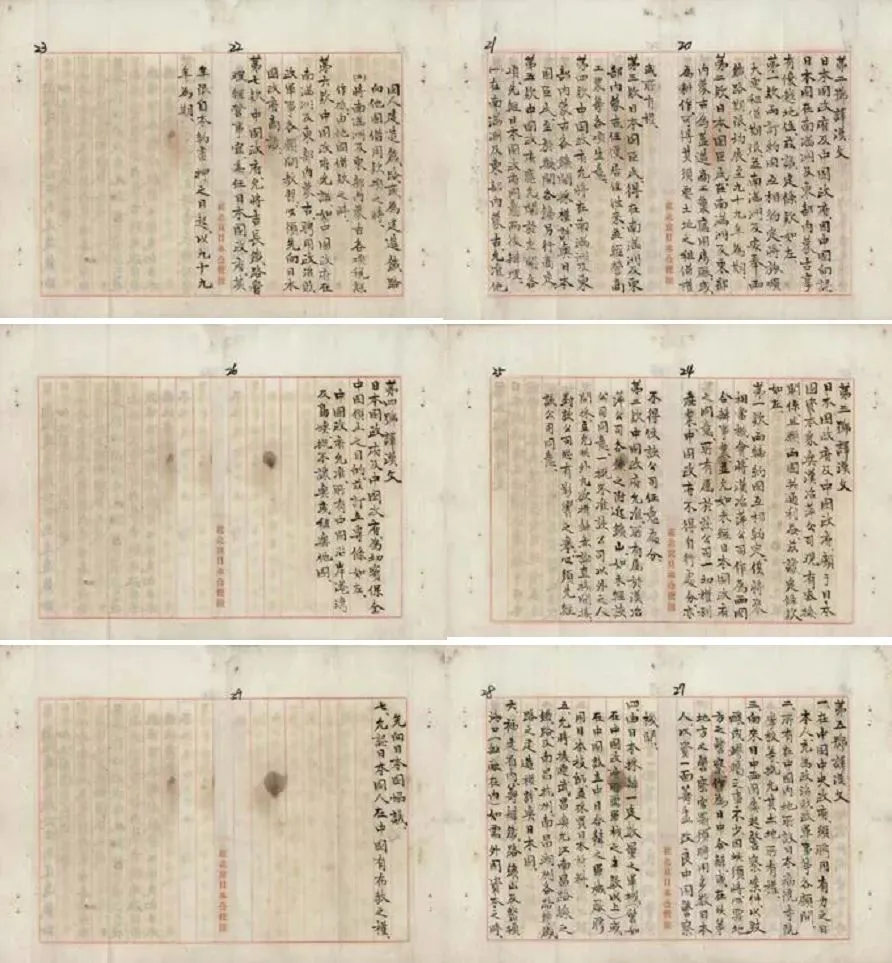 20
第二號譯漢文
日本國政府及中國政府因中國向認
日本國在南滿洲及東部內蒙古享
有優越地位茲議定條款如左
第一款兩訂約國互相約定將旅順
大連租借期限並南滿洲及安奉兩
鐵路期限均展至九十九年為期
第二款日本國臣民在南滿洲及東部
內蒙古為蓋造商工業應用房廠或
為耕作可得其須要土地之租借權
21
或所有權
第三款日本國臣民得在南滿洲及東
部內蒙古任便居住往來並經營商
工業等各項生意
第四款中國政府允將在南滿洲及東
部內蒙古各鑛開採權許與日本
國臣民至於擬開各鑛另行商定
第五款中國政府應允關於左開各
項先經日本國政府同意而後辦理
一在南滿洲及東部內蒙古允准他
22
國人建造鐵路或為建造鐵路
向他國借用款項之時
(二)將南滿洲及東部內蒙古各項稅課
作抵由他國借款之時
第六款中國政府允諾如中國政府在
南滿洲及東部內蒙古聘用政治財
政軍事各顧問教習必須先向日本
國政府商議
第七款中國政府允將吉長鐵路管
理經營事宜委任日本國政府其
23
年限自本約畫押之日起以九十九
年為期
24
第三號譯漢文
日本國政府及中國政府顧于日本
國資本家與漢冶萍公司現有密接
關係且願兩國共通利益茲議定條款
如左
第一款兩締約國互相約定俟將來
相當機會將漢冶萍公司作為兩國
合辦事業並允如未經日本國政府
之同意所有屬於該公司一切權利
產業中國政府不得自行處分亦
25
不得使該公司任意處分
第二款中國政府允准所有屬於漢冶
萍公司各鑛之附近鑛山如未經該
公司同意一概不准該公司以外之人
開採並允此外凡欲措辦無論直接間接
對該公司恐有影響之舉必須先經
該公司同意
26
第四號譯漢文
日本國政府及中國政府為切實保全
中國領土之目的茲訂立專條如左
中國政府允准所有中國沿岸港灣
及島嶼概不讓與或租與他國
27
第五號譯漢文
一、在中國中央政府須聘用有力之日
本人充為政治財政軍事等各顧問
二、所有在中國內地所設日本病院寺院
學校等概允其土地所有權
三、向來日中兩國屢起警察案件以致
釀成轇轕之事不少因此須將必要地
方之警察作為日中合辦或在此等
地方之警察官署須聘用多數日本
人以資一面籌畫改良中國警察
28
機關
四、由日本採辦一定數量之軍械(譬如
在中國政府所需軍械之半數以上)或
在中國設立中日合辦之軍械廠聘
用日本技師並採買日本材料
五、允將接連武昌與九江南昌路線之
鐵路及南昌杭州南昌潮州各路線鐵
路之建造權許與日本國
六、福建省內籌辦鐵路鑛山及整頓
海口(船廠在內)如需外國資本之時
29
先向日本國協議
七、允認日本國人在中國有布教之權
駐北京日本公使館
駐北京日本公使館
駐北京日本公使館
駐北京日本公使館
駐北京日本公使館
駐北京日本公使館